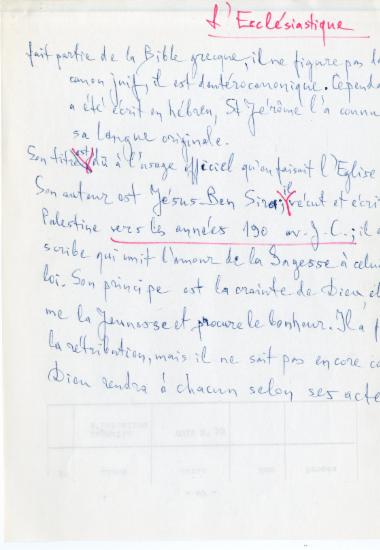 L'Ecclésiastique
fait partie de la Bible grecque, il ne figure pas
canon juif, il est deutérocanonique. Cependa
a été écrit en hébreu, St Jérôme l'a connu
sa langue originale.
Son titre est dû à l'usage officiel qu'en faisait l'Eglise
Son auteur est Jésus-Ben Sira; il vécut et écri
Palestine vers les années 190 av. J.C.; il
scribe qui unit l'amour de la Sagesse à celui
loi. Son principe est la crainte de Dieu,
me la Jeunesse et procure le bonheur. Il a
la rétribution, mais il ne sait pas encore co
Dieu rendra à chacun selon ses acte